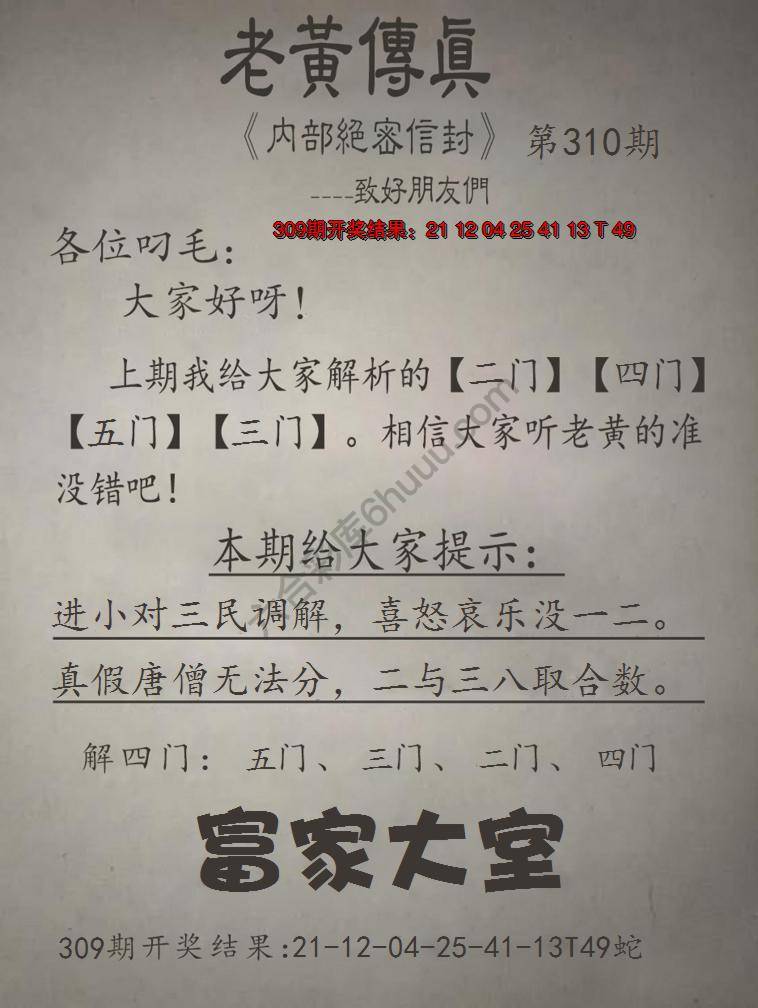 老黃傳眞
《内部絕密信封》 第310期
----致好朋友們
309期开奖结果：21 12 04 25 41 13 T 49
各位叼毛：
大家好呀！
上期我给大家解析的【二门】【四门】
【五门】【三门】。相信大家听老黄的准
没错吧！
本期给大家提示：
进小对三民调解，喜怒哀乐没一二。
真假唐僧无法分，二与三八取合数。
解四门：五门、三门、二门、四门
富家大室
309期开奖结果:21-12-04-25-41-13T49蛇
六合彩库6huuu.com